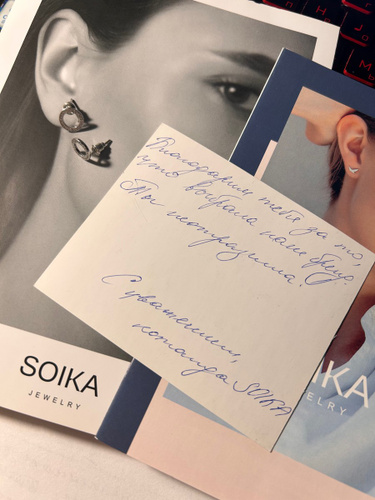 Благодарим тебя за то,
что выбрала наш бренд.
Ты неотразима!
С уважением,
команда SOIKA
SOIKA
JEWELRY
IKA
ELRY